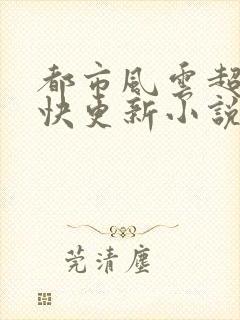 都市風雲超
快更新小說
莞清塵